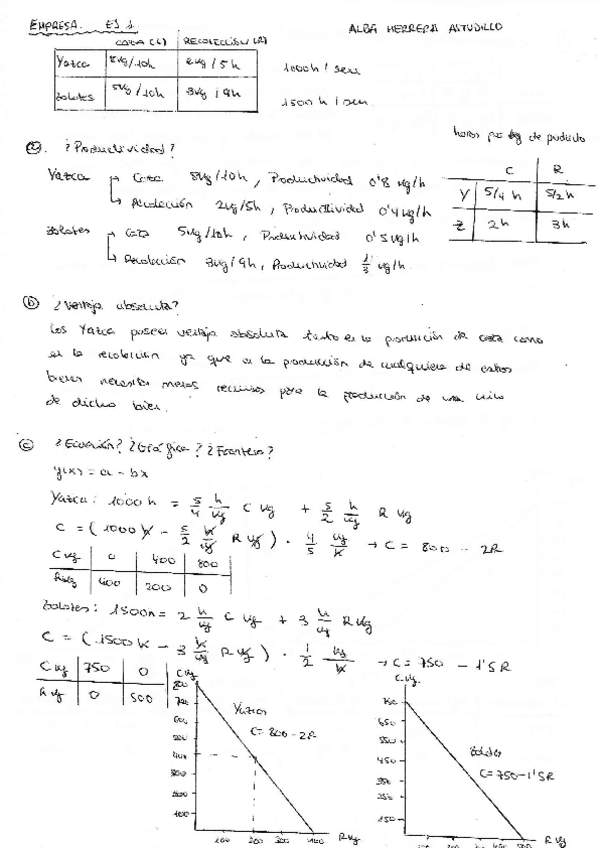 EMPRESA. EJ 1 ALBA HERRERA ASTUDILLO
CAZA (C) RECOLECCIÓN (R)
Yazca 8kg/10h 2kg/5h 1000h/sem
Zolotes 5kg/10h 3kg/9h 1500h/sem
horas por kg de producto
a. ¿Productividad?
C R
Yazca → Caza 8kg/10h, Productividad 0'8 kg/h
Y 5/4 h 5/2 h
↳ Recolección 2kg/5h, Productividad 0'4 kg/h
Z 2h 3h
Zolotes → Caza 5kg/10h, Productividad 0'5 kg/h
↳ Recolección 3kg/9h, Productividad 1/3 kg/h
b ¿Ventaja absoluta?
Los Yazca poseen ventaja absoluta tanto en la producción de caza como
en la recolección ya que en la producción de cualquiera de estos
bienes necesitan menos recursos para la producción de una kilo
de dicho bien.
c ¿Ecuación? ¿Gráfica? ¿Frontera?
y(x) = a - bx
Yazca: 1000h = 5/4 h/kg C kg + 5/2 h/kg R kg
C = (1000 h - 5/2 h/kg R kg) · 4/5 kg/h → C = 800 - 2R
C kg 0 400 800
R kg 400 200 0
Zolotes: 1500h = 2 h/kg C kg + 3 h/kg R kg
C = (1500 h - 3 h/kg R kg) · 1/2 kg/h → C = 750 - 1'5R
C kg 750 0
R kg 0 500
C kg
800
700
600
500
400
300
200
100
Yazca
C = 800 - 2R
100 200 300 400 R kg
C kg
750
650
550
450
350
250
150
Zolotes
C = 750 - 1'5R
100 200 300 400 500 R kg